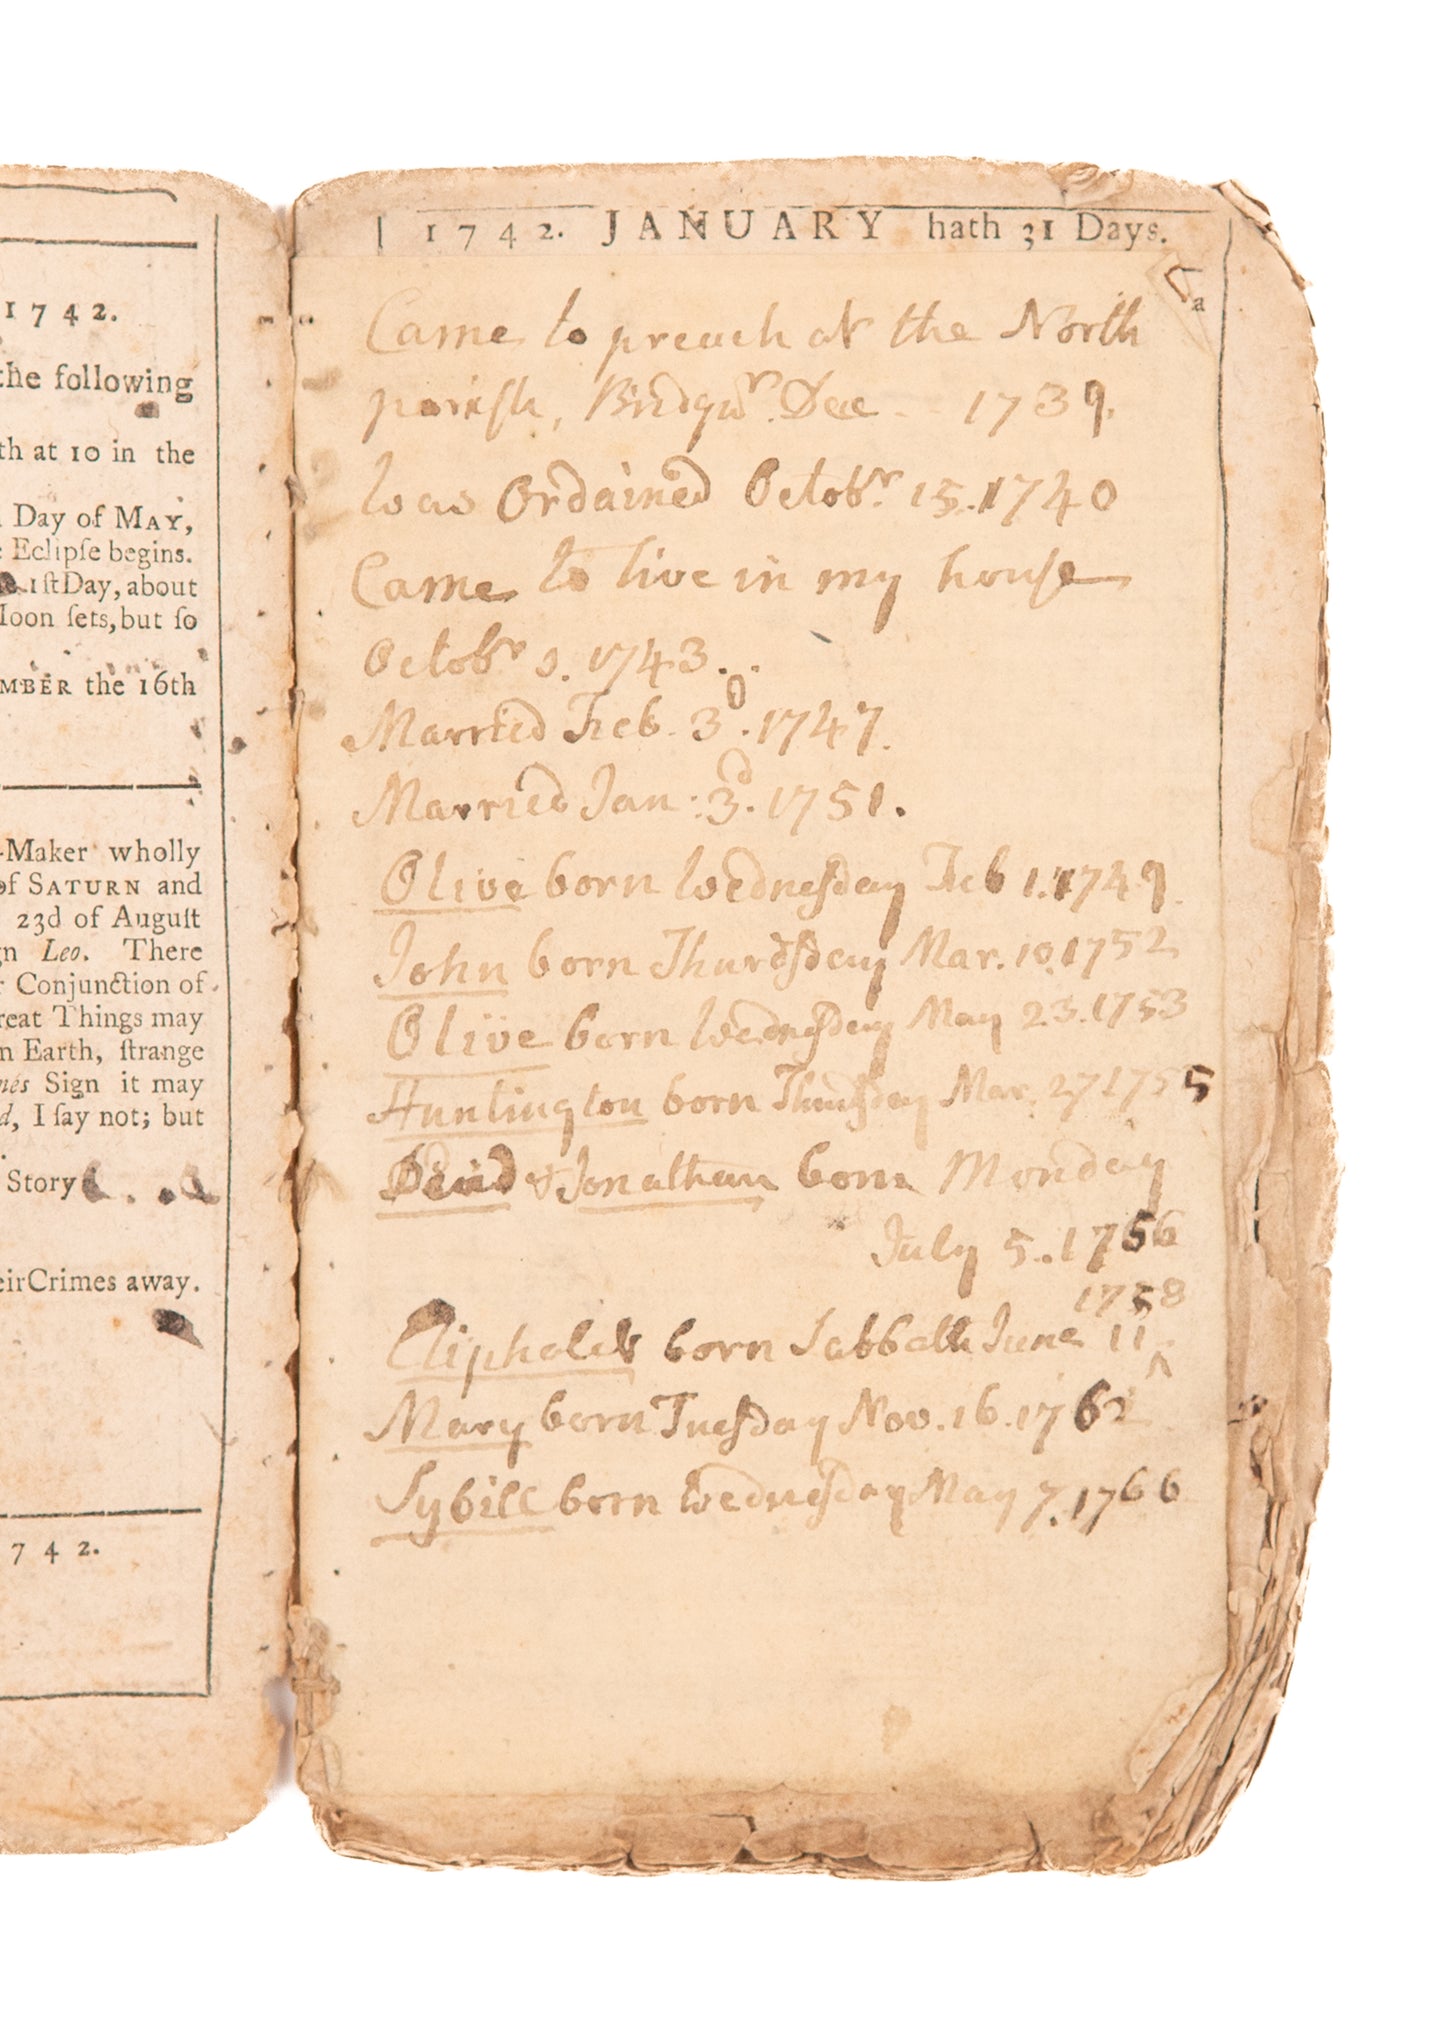 1742.
the following
th at 10 in the
Day of MAY,
Eclipſe begins.
1ſt Day, about
Moon ſets, but ſo
MBER the 16th
-Maker wholly
of SATURN and
23d of Auguſt
gn Leo. There
r Conjunction of
reat Things may
n Earth, ſtrange
Sign it may
d, I ſay not; but
Story
eir Crimes away.
742.
1742. JANUARY hath 31 Days.
a
Came to preach at the North
pariſh, Bridgwr. Dec 1739.
was Ordained Octobr 15. 1740
Came to live in my houſe
Octobr 9. 1743.
Married Feb. 3d. 1747.
Married Jan: 3d. 1751.
Olive born Wedneſday Feb 1. 1749.
John born Thurdſday Mar. 19. 1752
Olive born Wedneſday May 23. 1753
Huntington born Thurſday Mar. 27 1755
David & Jonathan born Monday
July 5. 1756
1758
Eliphalet born Sabbath June 11 ^
Mary born Tueſday Nov. 16. 1762
Sybill born Wedneſday May 7. 1766